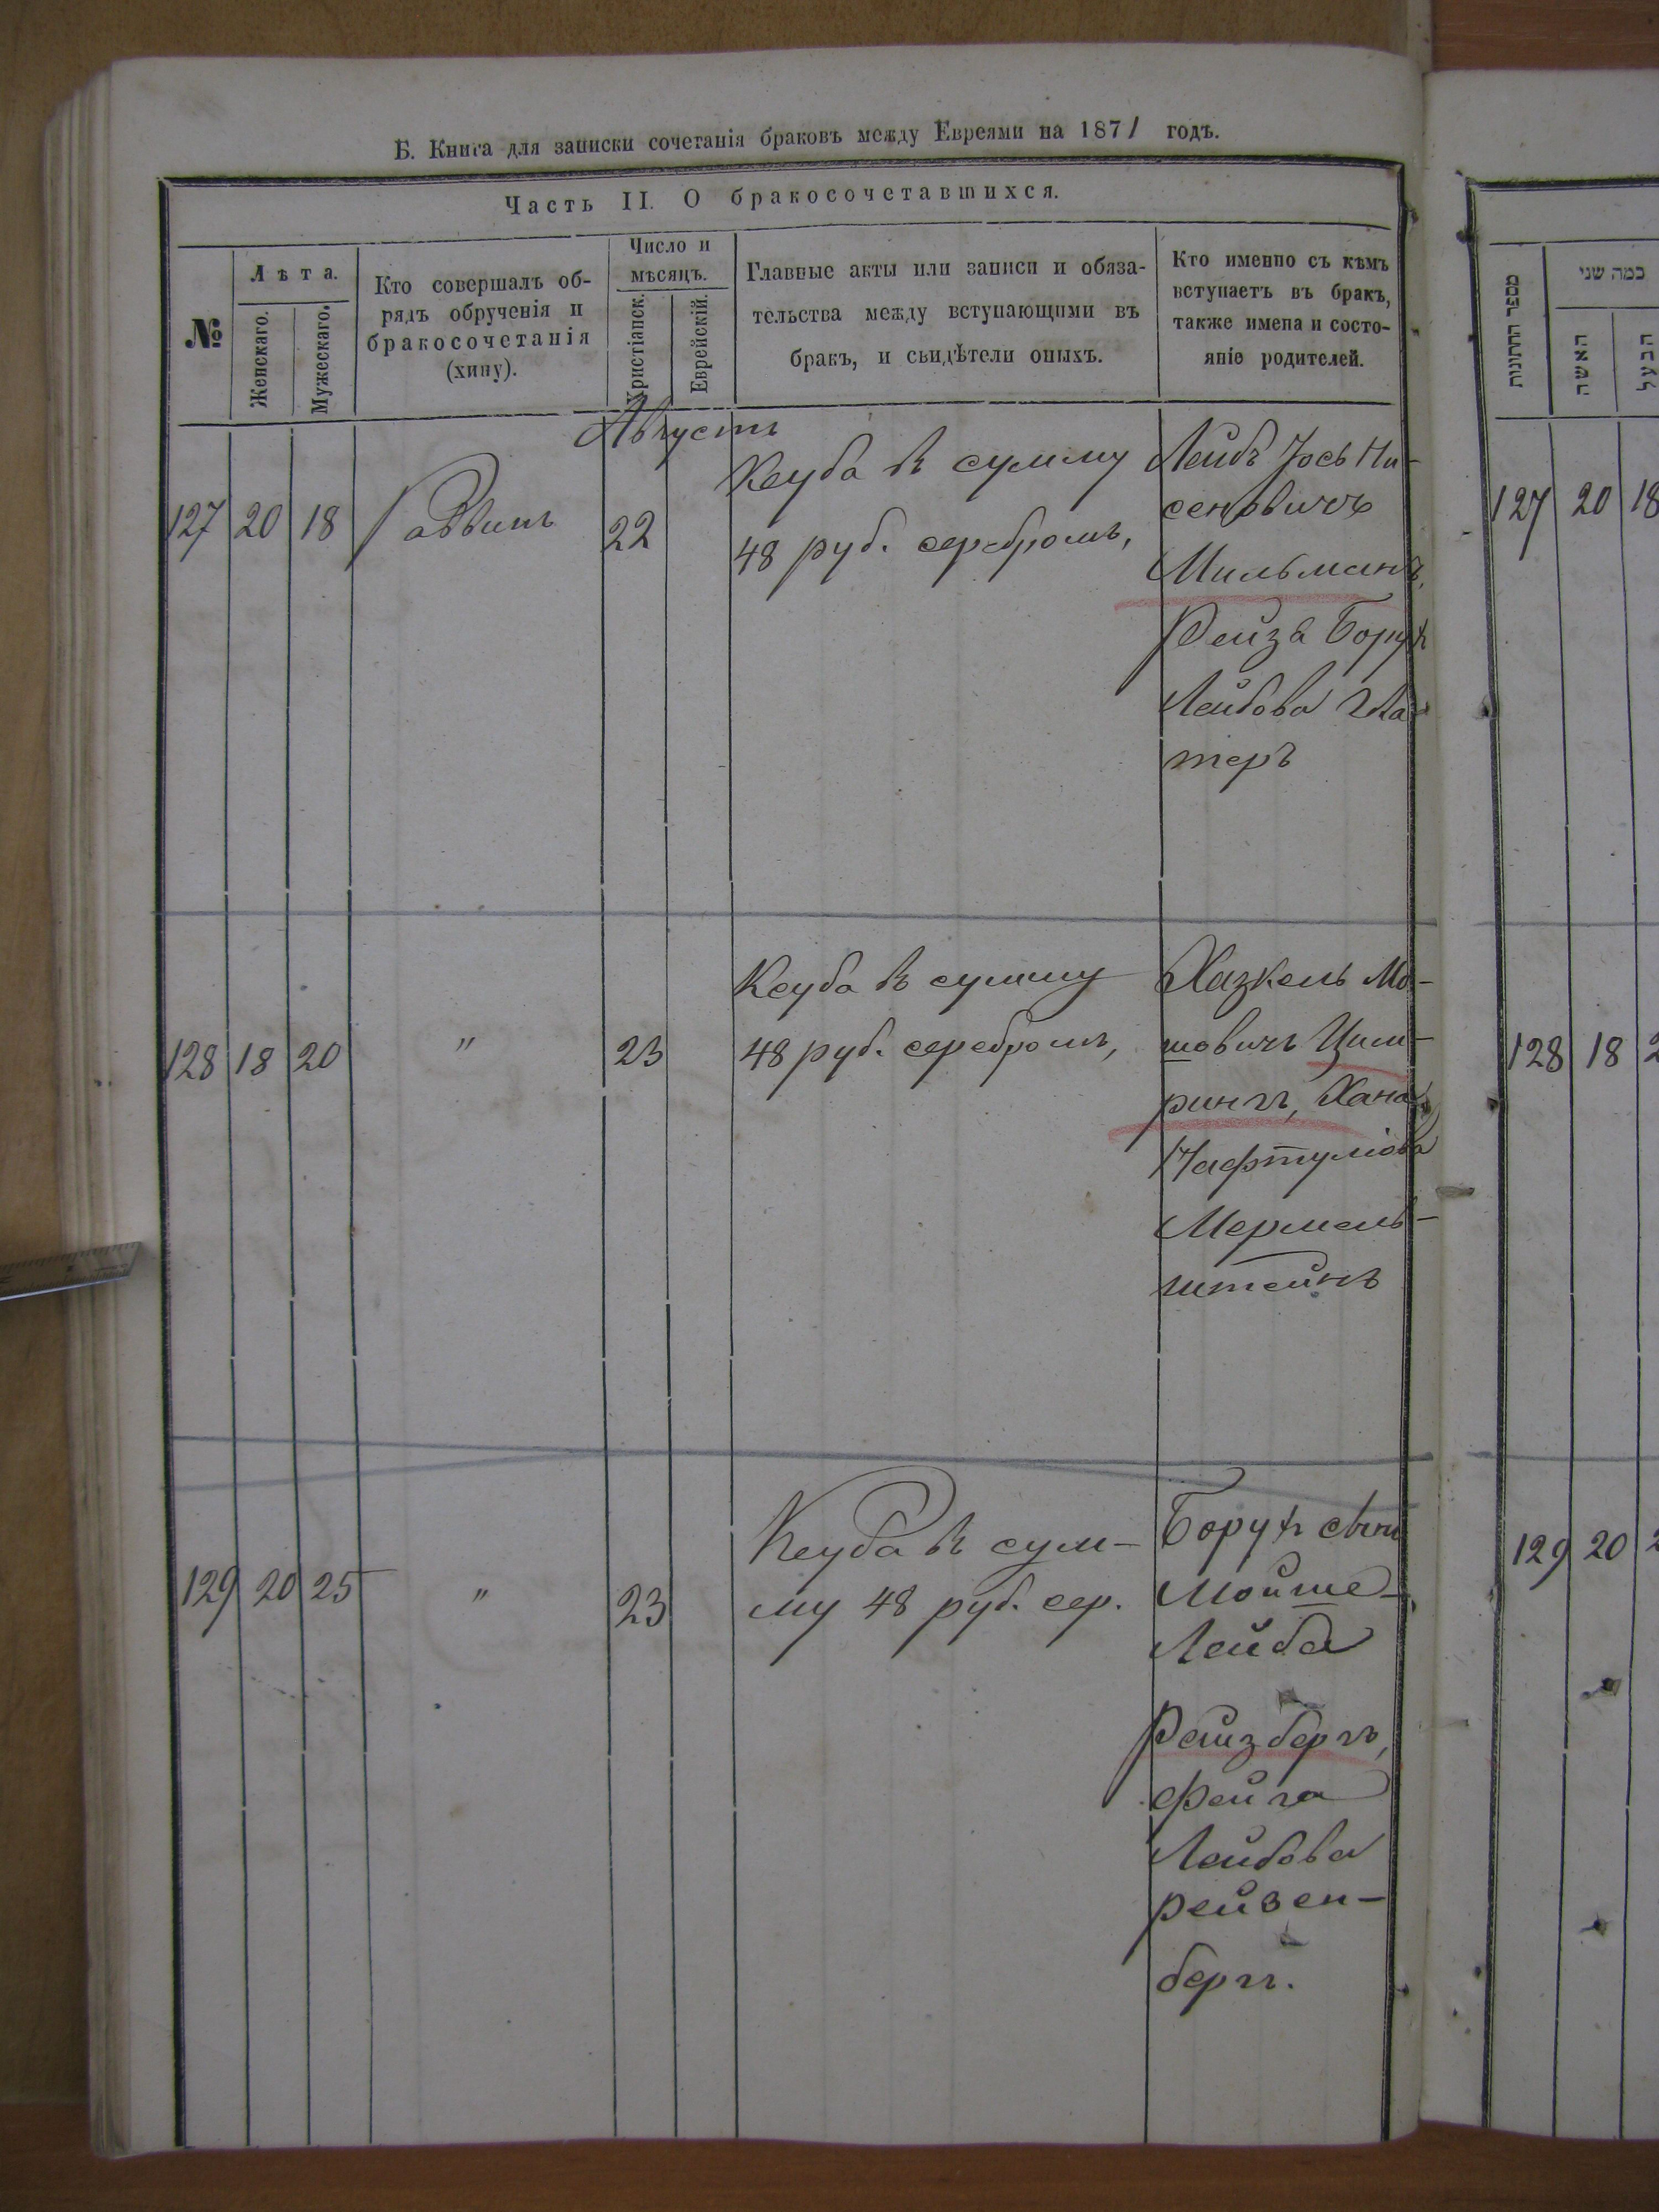 Б. Книга для записки сочетанія браковъ между Евреями на 1871 годъ.
Часть II. О бракосочетавшихся.
№
Лѣта.
Женскаго.
Мужескаго.
Кто совершалъ об-
рядъ обрученія и
бракосочетанія
(хипу).
Число и
мѣсяцъ.
Христіанск.
Еврейскій.
Главные акты или записи и обяза-
тельства между вступающими въ
бракъ, и свидѣтели оныхъ.
Кто именно съ кѣмъ
вступаетъ въ бракъ,
также имена и состо-
яніе родителей.
Августъ
127 20 18 Раввинъ 22
Кеуба въ сумму
48 руб. серебромъ,
Лейбъ Іось Ни-
сеновичъ
Мильманъ,
Рейза Борух
Лейбова
теръ
128 18 20 " 23
Кеуба въ сумму
48 руб. серебромъ,
Хазкель Мо-
шовичъ Цим-
рингъ, Хана
Нафтуліова
Мермель-
штейнъ
129 20 25 " 23
Кеуба въ сум-
му 48 руб. сер.
Борухъ сынъ
Мойше-
Лейба
Рейзбергъ,
Фейга
Лейбова
Рейзен-
бергъ.
מספר החתונות
כמה שני
האשה
הבעל
127 20 18
128 18 2
129 20 2